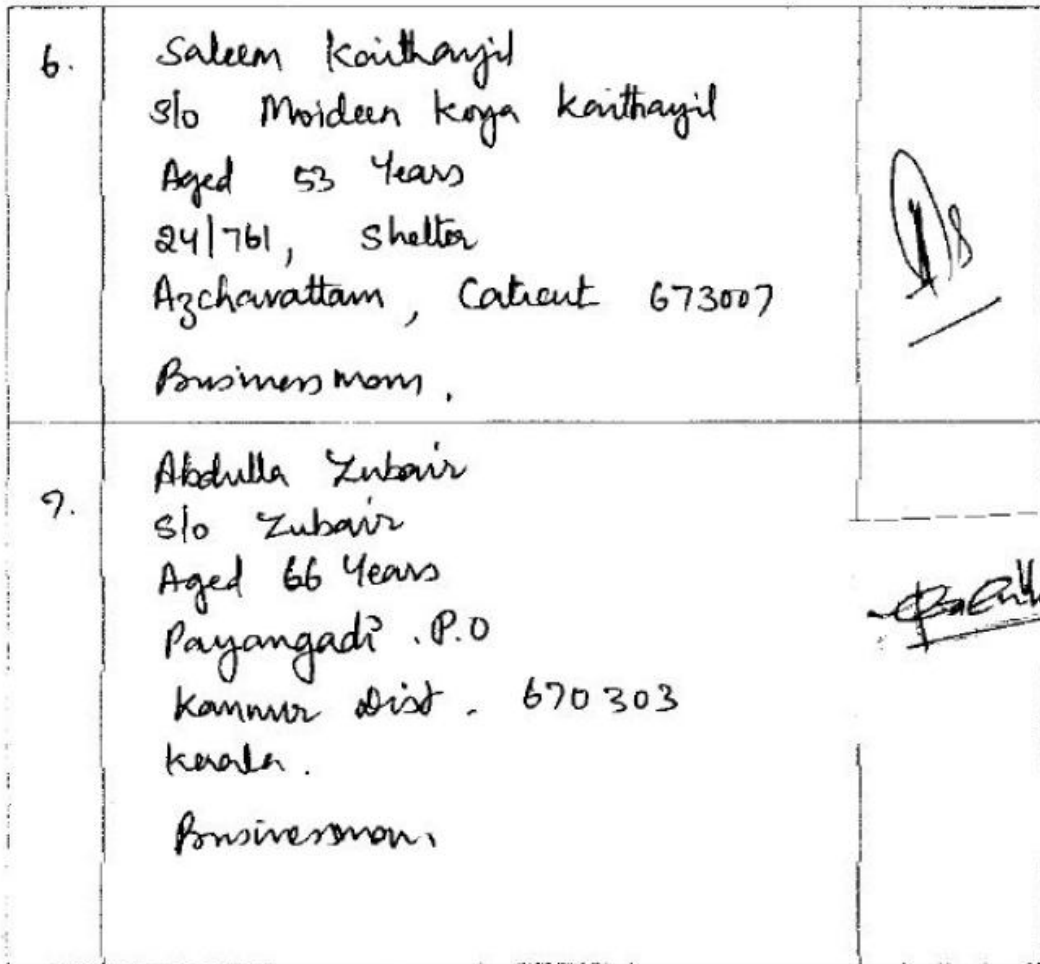 6.
Saleem Kaithayil
S/o Moideen Koya Kaithayil
Aged 53 Years
24/761, Shelter
Azchavattam, Calicut 673007
Businessman.
7.
Abdulla Zubair
S/o Zubair
Aged 66 Years
Payangadi .P.O
Kannur Dist. 670303
Kerala.
Businessman.